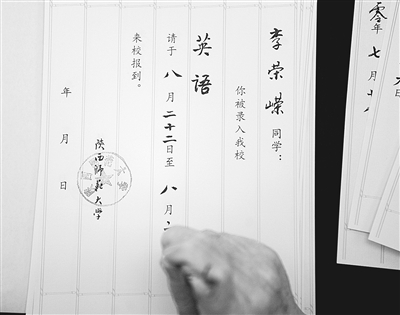 零年七月十八
李荣嵘同学：
你被录入我校
英语
请于八月二十二日至八月
来校报到。
陕西師範大学
年月日